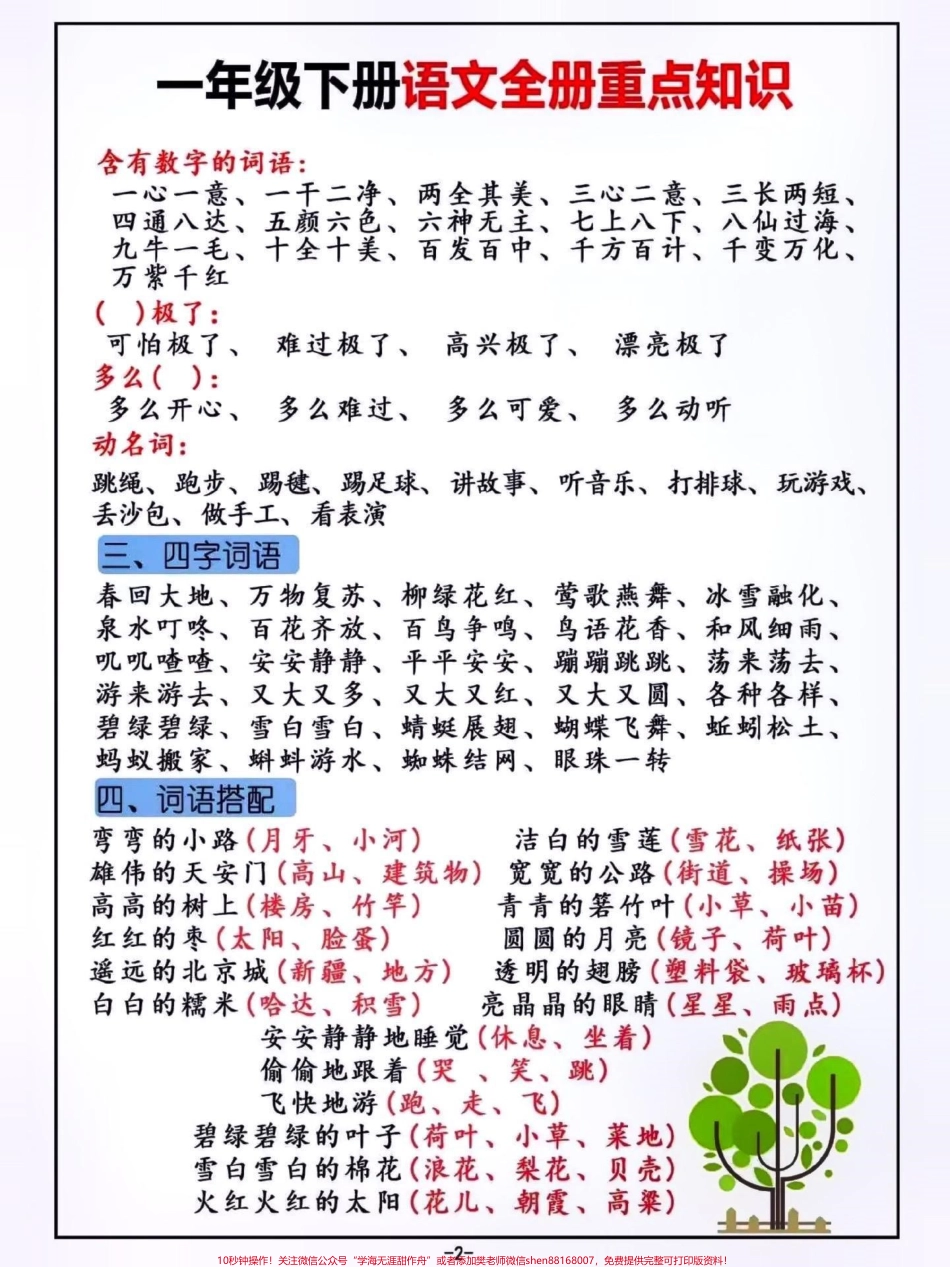 一年级下册语文全册重点知识
含有数字的词语：
一心一意、一干二净、两全其美、三心二意、三长两短、
四通八达、五颜六色、六神无主、七上八下、八仙过海、
九牛一毛、十全十美、百发百中、千方百计、千变万化、
万紫千红
(　)极了：
可怕极了、 难过极了、 高兴极了、 漂亮极了
多么(　)：
多么开心、 多么难过、 多么可爱、 多么动听
动名词：
跳绳、跑步、踢毽、踢足球、讲故事、听音乐、打排球、玩游戏、
丢沙包、做手工、看表演
三、四字词语
春回大地、万物复苏、柳绿花红、莺歌燕舞、冰雪融化、
泉水叮咚、百花齐放、百鸟争鸣、鸟语花香、和风细雨、
叽叽喳喳、安安静静、平平安安、蹦蹦跳跳、荡来荡去、
游来游去、又大又多、又大又红、又大又圆、各种各样、
碧绿碧绿、雪白雪白、蜻蜓展翅、蝴蝶飞舞、蚯蚓松土、
蚂蚁搬家、蝌蚪游水、蜘蛛结网、眼珠一转
四、词语搭配
弯弯的小路(月牙、小河) 洁白的雪莲(雪花、纸张)
雄伟的天安门(高山、建筑物) 宽宽的公路(街道、操场)
高高的树上(楼房、竹竿) 青青的箬竹叶(小草、小苗)
红红的枣(太阳、脸蛋) 圆圆的月亮(镜子、荷叶)
遥远的北京城(新疆、地方) 透明的翅膀(塑料袋、玻璃杯)
白白的糯米(哈达、积雪) 亮晶晶的眼睛(星星、雨点)
安安静静地睡觉(休息、坐着)
偷偷地跟着(哭 、笑、跳)
飞快地游(跑、走、飞)
碧绿碧绿的叶子(荷叶、小草、菜地)
雪白雪白的棉花(浪花、梨花、贝壳)
火红火红的太阳(花儿、朝霞、高粱)
-2-
10秒钟操作！关注微信公众号“学海无涯甜作舟”或者添加樊老师微信shen88168007，免费提供完整可打印版资料！